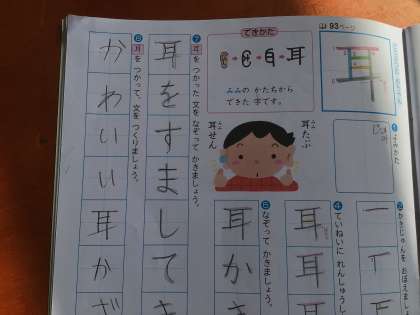 93ページ
耳
できかた
耳
みみの かたちから
できた 字です。
耳たぶ
みみ
耳せん
みみ
よみかた
かきじゅんを おぼえまし
ていねいに れんしゅうし
耳
耳
耳
なぞって かきましょう。
耳か
耳を つかった 文を なぞって かきましょう。
耳をすまして
耳を つかって、文を つくりましょう。
かわいい耳か